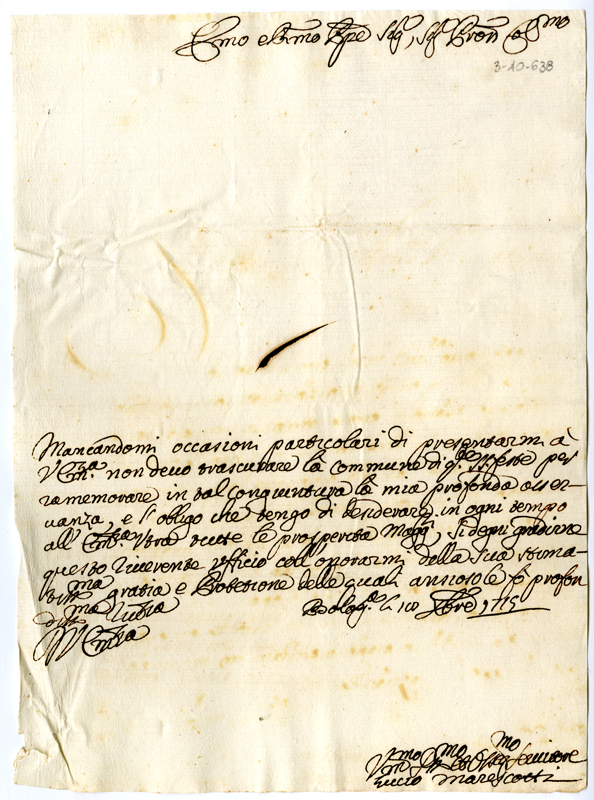 Emo e Rmo Ppe Sig.r, Sig.r Pron Col.mo
3-10-638
Mancandomi occasioni particolari di presentarmi à
V Em.za non devo trascurare la commune di q.te S.te feste per
ramemorare in tal congiuntura la mia profonda osser-
uanza, e l'obligo che tengo di desiderare in ogni tempo
all' Em.za Vtra tutte le prosperità Magg.ri, si degni gradire
questo riverente Ufficio coll'onorarmi della sua stima-
tiss.ma gratia e Protettione delle quali ansioso le fò profon
diss.ma
V Em.za
Bolog.a li 10 Xbre 1715
Vmo
Servitore
Marescotti